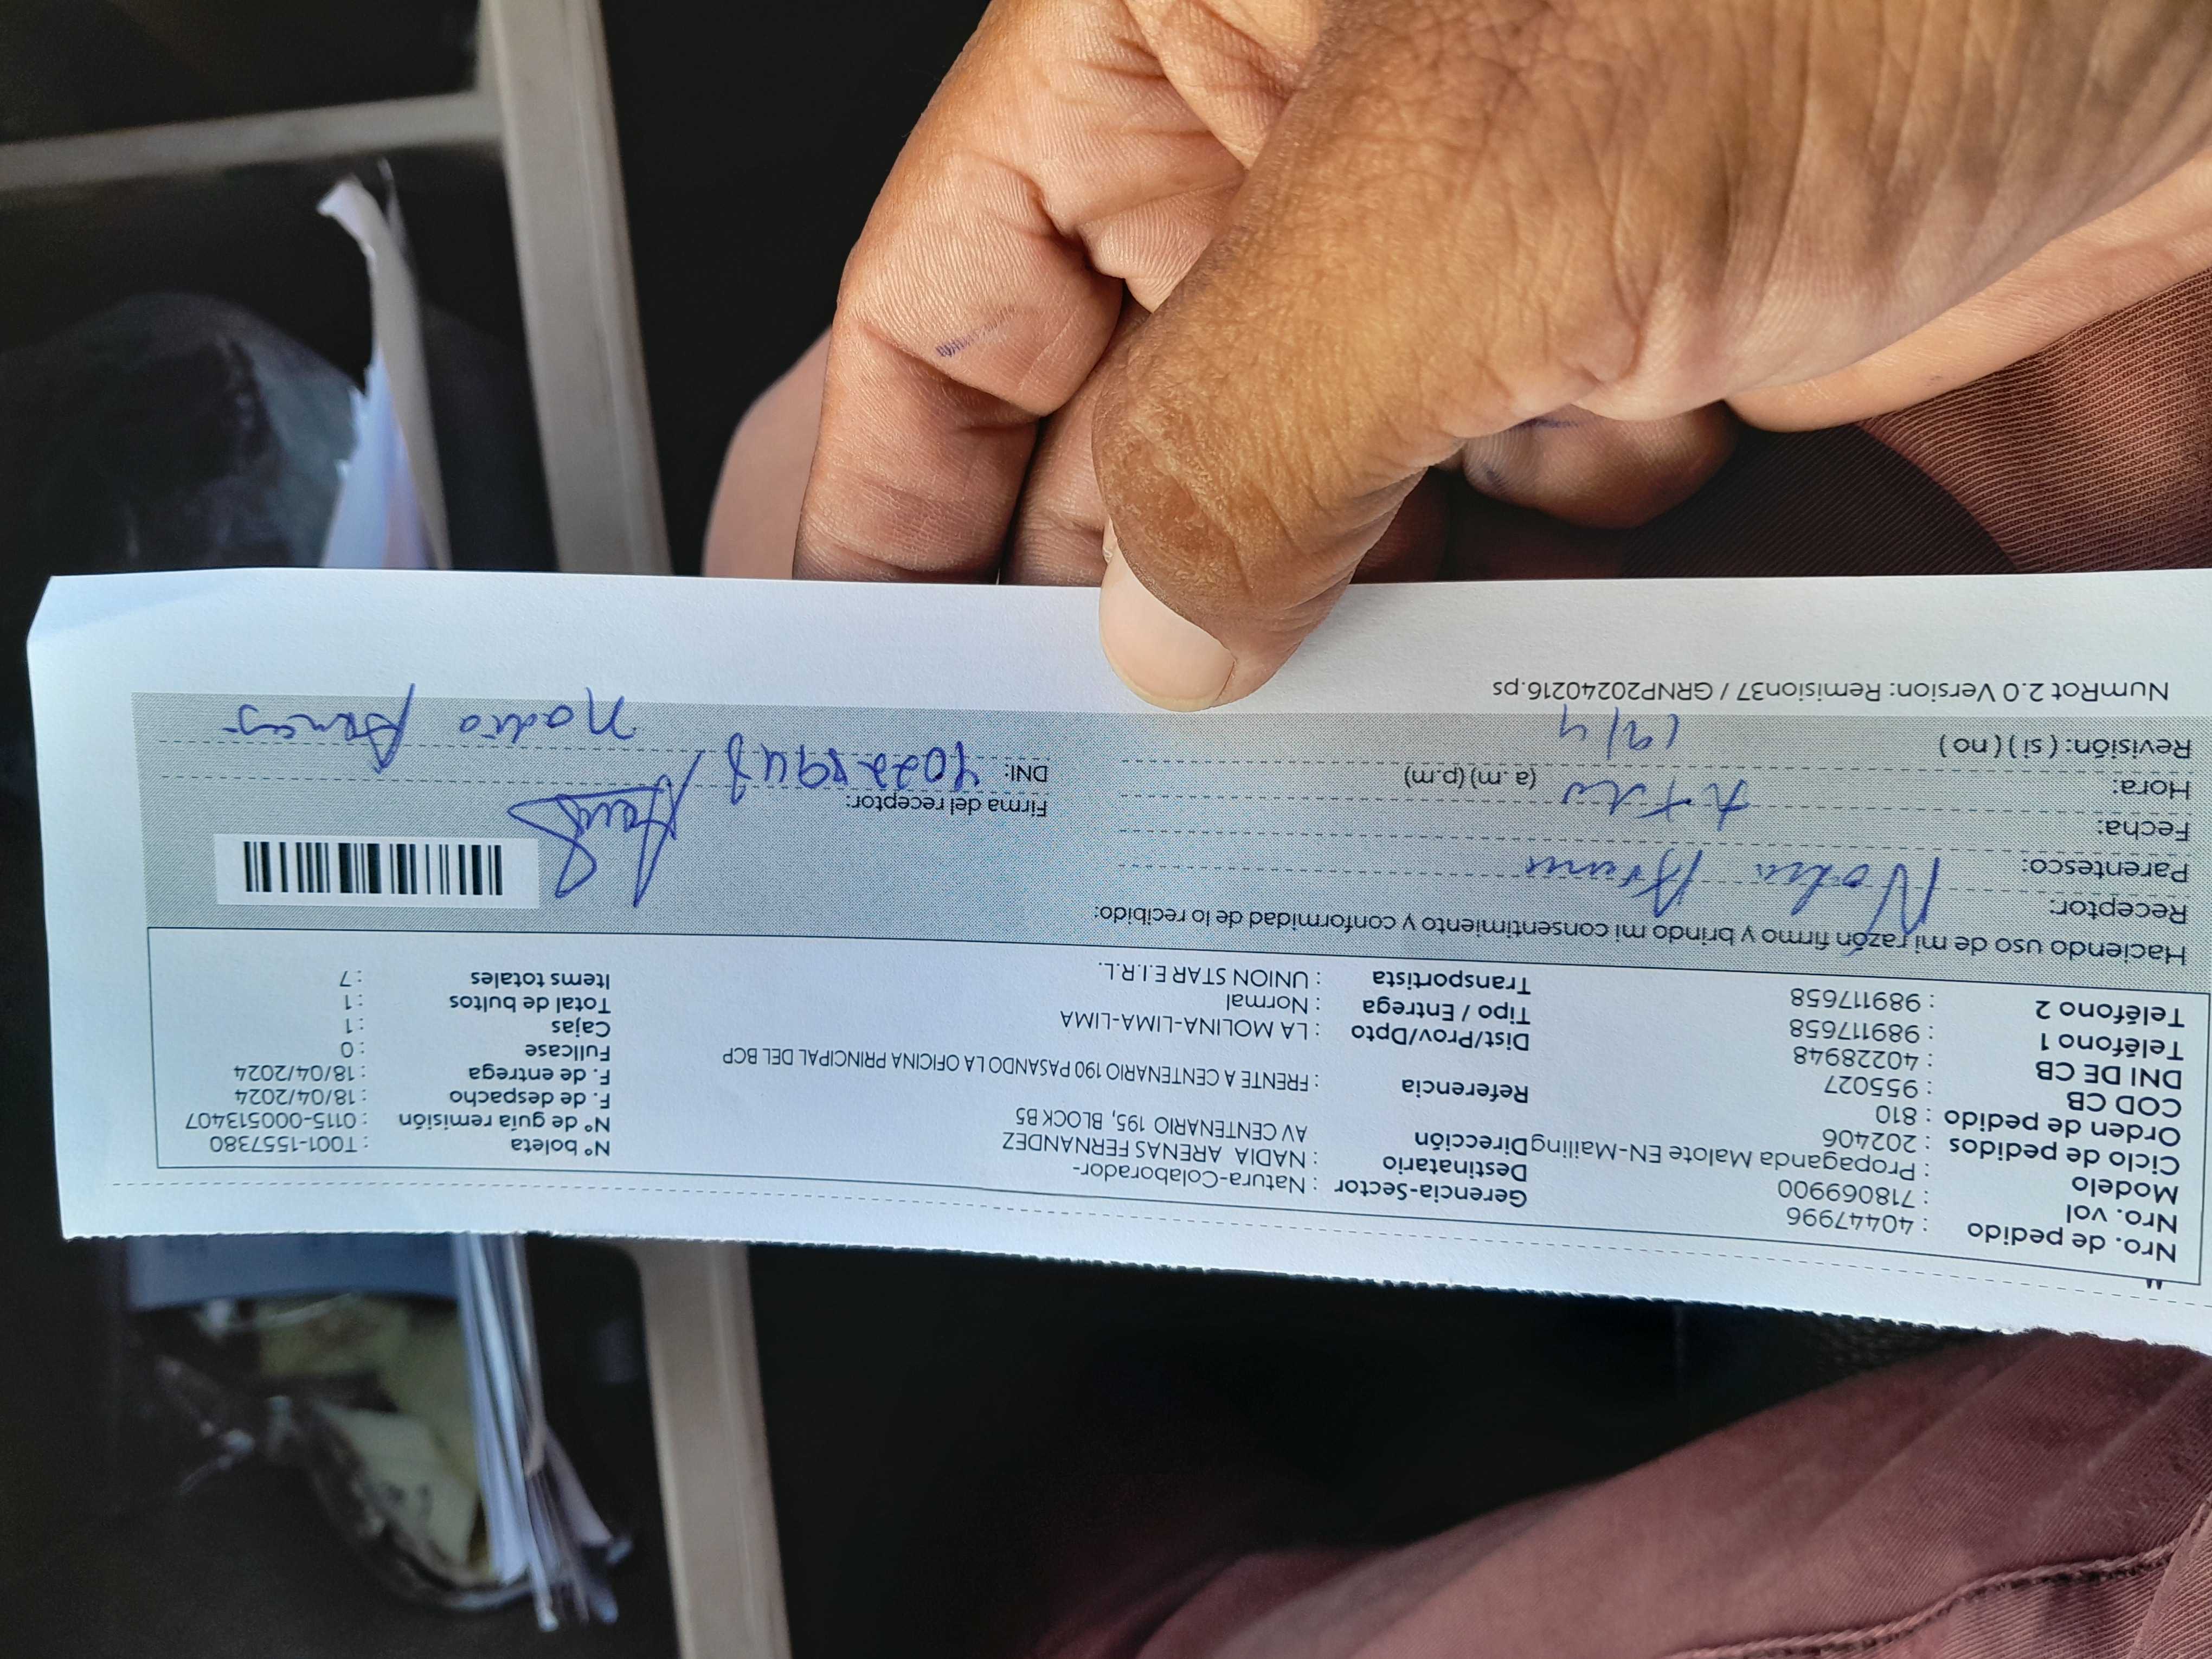 Nro. de pedido : 40447996
Nro. vol : 718069900
Modelo : Propaganda Malote EN-Mailing
Ciclo de pedidos : 202406
Orden de pedido : 810
COD CB : 955027
DNI DE CB : 40228948
Teléfono 1 : 989117658
Teléfono 2 : 989117658
Gerencia-Sector : Natura-Colaborador-
Destinatario : NADIA ARENAS FERNANDEZ
Dirección AV CENTENARIO 195, BLOCK B5
Referencia : FRENTE A CENTENARIO 190 PASANDO LA OFICINA PRINCIPAL DEL BCP
Dist/Prov/Dpto : LA MOLINA-LIMA-LIMA
Tipo / Entrega : Normal
Transportista : UNION STAR E.I.R.L.
Nº boleta : T001-1557380
Nº de guía remisión : 0115-000513407
F. de despacho : 18/04/2024
F. de entrega : 18/04/2024
Fullcase : 0
Cajas : 1
Total de bultos : 1
Items totales : 7
Haciendo uso de mi razón firmo y brindo mi consentimiento y conformidad de lo recibido:
Receptor: Nadia Arenas
Parentesco:
Fecha:
Hora: (a. m) (p.m)
Revisión: ( si ) ( no ) 19/4
Firma del receptor:
DNI: 40228948
Nadia Arenas
NumRot 2.0 Version: Remision37 / GRNP20240216.ps